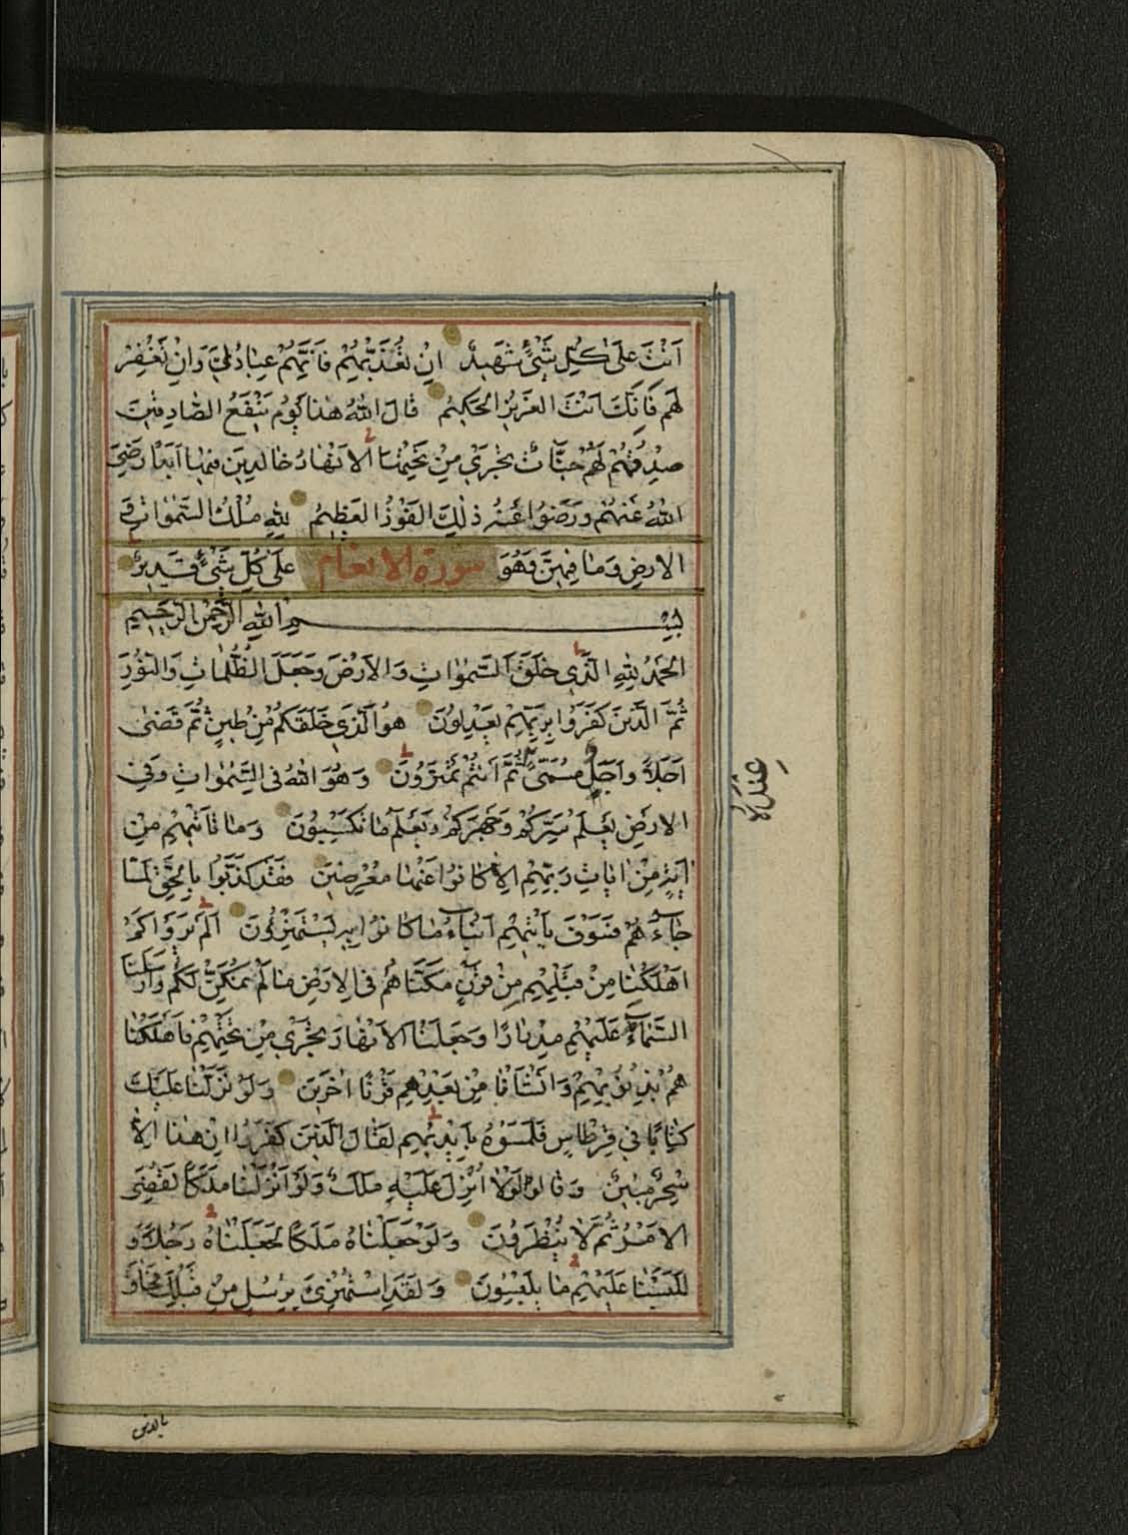 اَنْتَ عَلٰى كُلِّ شَيْءٍ شَهِيدٌ اِنْ تُعَذِّبْهُمْ فَاِنَّهُمْ عِبَادُكَ وَاِنْ تَغْفِرْ
لَهُمْ فَاِنَّكَ اَنْتَ الْعَزِيزُ الْحَكِيمُ قَالَ اللّٰهُ هٰذَا يَوْمُ يَنْفَعُ الصَّادِقِينَ
صِدْقُهُمْ لَهُمْ جَنَّاتٌ تَجْرِي مِنْ تَحْتِهَا الْاَنْهَارُ خَالِدِينَ فِيهَا اَبَدًا رَضِيَ
اللّٰهُ عَنْهُمْ وَرَضُوا عَنْهُ ذٰلِكَ الْفَوْزُ الْعَظِيمُ لِلّٰهِ مُلْكُ السَّمٰوَاتِ وَ
الْاَرْضِ وَمَا فِيهِنَّ وَهُوَ سورة الانعام عَلٰى كُلِّ شَيْءٍ قَدِيرٌ
بِسْمِ اللّٰهِ الرَّحْمٰنِ الرَّحِيمِ
اَلْحَمْدُ لِلّٰهِ الَّذِي خَلَقَ السَّمٰوَاتِ وَالْاَرْضَ وَجَعَلَ الظُّلُمَاتِ وَالنُّورَ
ثُمَّ الَّذِينَ كَفَرُوا بِرَبِّهِمْ يَعْدِلُونَ هُوَ الَّذِي خَلَقَكُمْ مِنْ طِينٍ ثُمَّ قَضٰى
اَجَلًا وَاَجَلٌ مُسَمًّى ثُمَّ اَنْتُمْ تَمْتَرُونَ وَهُوَ اللّٰهُ فِي السَّمٰوَاتِ وَفِي
عِنْدَهُ
الْاَرْضِ يَعْلَمُ سِرَّكُمْ وَجَهْرَكُمْ وَيَعْلَمُ مَا تَكْسِبُونَ وَمَا تَأْتِيهِمْ مِنْ
اٰيَةٍ مِنْ اٰيَاتِ رَبِّهِمْ اِلَّا كَانُوا عَنْهَا مُعْرِضِينَ فَقَدْ كَذَّبُوا بِالْحَقِّ لَمَّا
جَاءَهُمْ فَسَوْفَ يَأْتِيهِمْ اَنْبَاءُ مَا كَانُوا بِهِ يَسْتَهْزِؤُنَ اَلَمْ يَرَوْا كَمْ
اَهْلَكْنَا مِنْ قَبْلِهِمْ مِنْ قَرْنٍ مَكَّنَّاهُمْ فِي الْاَرْضِ مَا لَمْ نُمَكِّنْ لَكُمْ وَاَرْسَلْنَا
السَّمَاءَ عَلَيْهِمْ مِدْرَارًا وَجَعَلْنَا الْاَنْهَارَ تَجْرِي مِنْ تَحْتِهِمْ فَاَهْلَكْنَا
هُمْ بِذُنُوبِهِمْ وَاَنْشَاْنَا مِنْ بَعْدِهِمْ قَرْنًا اٰخَرِينَ وَلَوْ نَزَّلْنَا عَلَيْكَ
كِتَابًا فِي قِرْطَاسٍ فَلَمَسُوهُ بِاَيْدِيهِمْ لَقَالَ الَّذِينَ كَفَرُوا اِنْ هٰذَا اِلَّا
سِحْرٌ مُبِينٌ وَقَالُوا لَوْلَا اُنْزِلَ عَلَيْهِ مَلَكٌ وَلَوْ اَنْزَلْنَا مَلَكًا لَقُضِيَ
الْاَمْرُ ثُمَّ لَا يُنْظَرُونَ وَلَوْ جَعَلْنَاهُ مَلَكًا لَجَعَلْنَاهُ رَجُلًا وَ
لَلَبَسْنَا عَلَيْهِمْ مَا يَلْبِسُونَ وَلَقَدِ اسْتُهْزِئَ بِرُسُلٍ مِنْ قَبْلِكَ فَحَاقَ
بالذين